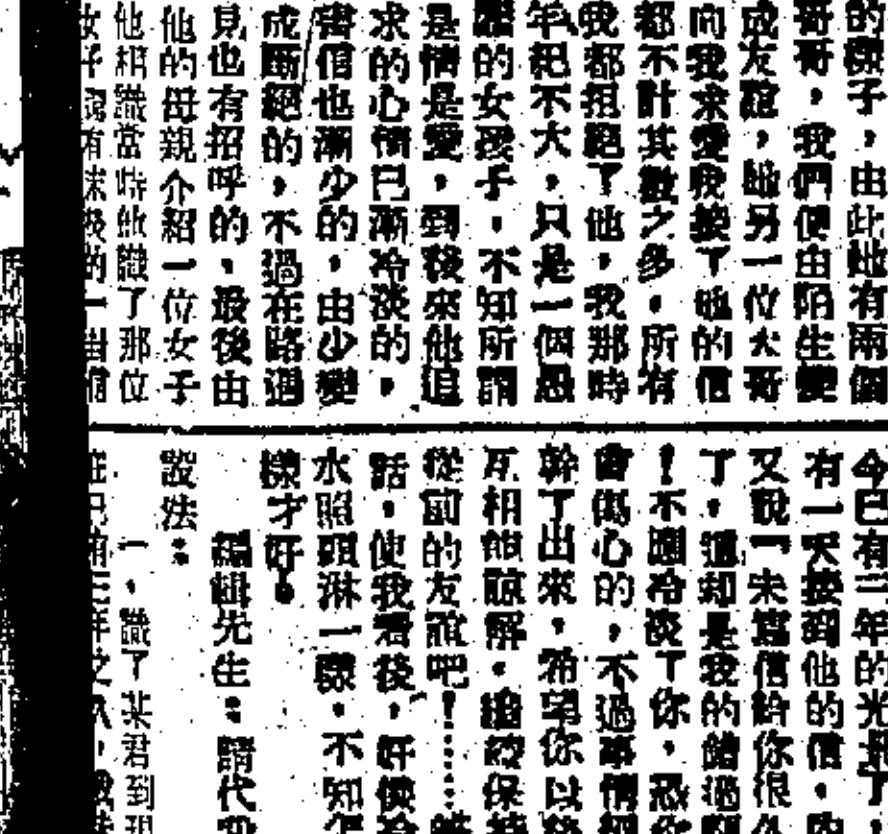 的樣子，由此她有兩個
哥哥，我們便由陌生變
成友誼，她另一位大哥
向我求愛我接了他的信
都不計其數之多，所有
我都拒絕了他，我那時
年紀不大，只是一個愚
的女孩子，不知所謂
是情是愛，到後來他追
求的心情已漸冷淡的，
書信也漸少的，由少變
成斷絕的，不過在路過
見也有招呼的，最後由
他的母親介紹一位女子
他相識當時他識了那位
女子
今已有三年的光景了，
有一天接到他的信，內
又說一未寫信給你很久
了，這却是我的錯過
！不過冷淡了你，恐你
會傷心的，不過事情
幹了出來，希望你以
互相諒解，繼續保持
從前的友誼吧！……
話，使我看後，好像冷
水照頭淋一樣，不知怎
樣才好。
編輯先生：請代我
設法：
一，識了某君到現
在已有三年之久，